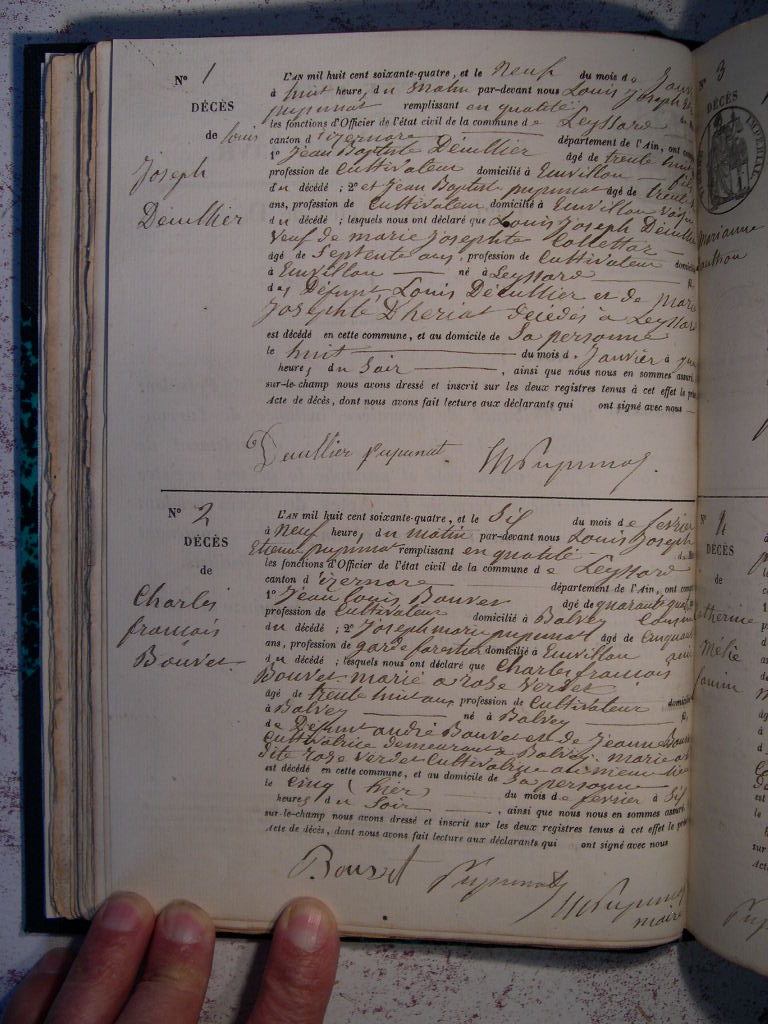 N° 1
DÉCÈS
de Louis
Joseph
Décullier
L'AN mil huit cent soixante-quatre, et le Neuf du mois de Janv
à huit heure, du Matin par-devant nous Louis Joseph Et
pupunat remplissant en qualité
les fonctions d'Officier de l'état civil de la commune de Leyssard
canton d'izernore département de l'Ain, ont com
1° Jean Baptiste Décullier âgé de trente huit
profession de Cultivateur domicilié à Emvillon fils
du décédé ; 2° et Jean Baptiste pupunat âgé de trente
ans, profession de Cultivateur domicilié à Emvillon vois
du décédé ; lesquels nous ont déclaré que Louis Joseph Décullier
veuf de marie Josephte Collettaz
âgé de Septente ans, profession de Cultivateur domicilié
à Emvillon né à Leyssard fi
des Défunt Louis Décullier et de Marie
Josephte Dheriat décédés à Leyssard
est décédé en cette commune, et au domicile de Sa personne
le huit du mois de Janvier à
heure, du Soir , ainsi que nous nous en sommes assuré
sur-le-champ nous avons dressé et inscrit sur les deux registres tenus à cet effet le pré
Acte de décès, dont nous avons fait lecture aux déclarants qui ont signé avec nous
Decullier pupunat. Mpupunat.
N° 2
DÉCÈS
de
Charles
francois
Bouvet
L'AN mil huit cent soixante-quatre, et le Sis du mois de fevrier
à Neuf heure, du matin par-devant nous Louis Joseph
Etienne pupunat remplissant en qualité
les fonctions d'Officier de l'état civil de la commune de Leyssard
canton d'izernore département de l'Ain, ont comp
1° Jean Louis Bouvet âgé de quarante quatre
profession de Cultivateur domicilié à Balvey Cousin
du décédé ; 2° Joseph marie pupunat âgé de Cinquante
ans, profession de garde forestier domicilié à Emvillon ami
du décédé ; lesquels nous ont déclaré que Charles francois
Bouvet marié a rose Verdet
âgé de trente huit ans profession de Cultivateur domicilié
à Balvey né à Balvey fi
de Défunt andré Bouvet et de Jeanne
Cultivatrice demeurant a Balvey. marié a
dite rose Verdet Cultivatrice au meme lieu
est décédé en cette commune, et au domicile de Sa personne
le Cinq (hier) du mois de fevrier à Sis
heures du Soir , ainsi que nous nous en sommes assuré
sur-le-champ nous avons dressé et inscrit sur les deux registres tenus à cet effet le pré
Acte de décès, dont nous avons fait lecture aux déclarants qui ont signé avec nous
Bouvet Pupunat Mpupunat
maire
N° 3
DÉCÈS
Marianne
N° 4
DÉCÈS
de